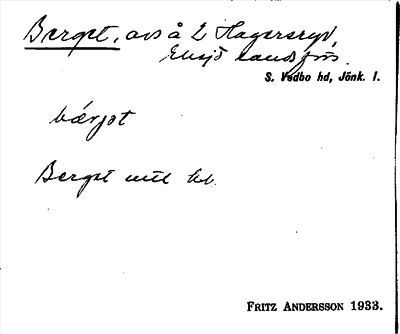 Berget, avs å 2 Hagersryd,
Eksjö landsförs.
S. Vedbo hd, Jönk. l.
bærjət
Berget utt. bl.
FRITZ ANDERSSON 1933.